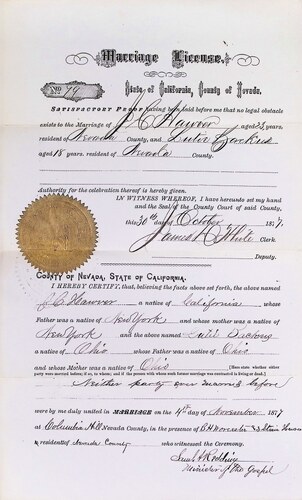 Marriage License.
No. 79
State of California, County of Nevada.
SATISFACTORY PROOF having been laid before me that no legal obstacle
exists to the Marriage of J C Hawver aged 23 years,
resident Nevada County, and
aged 18 years, resident of Nevada County.
Authority for the celebration thereof is hereby given.
IN WITNESS WHEREOF, I have hereunto set my hand
and the Seal of the County Court of said County,
this 30th day October 1877.
James D White Clerk.
Deputy.
COUNTY OF NEVADA, STATE OF CALIFORNIA.
I HEREBY CERTIFY, that, believing the facts above set forth, the above named
J. C. Hawver a native of California whose
Father was a native of New York and whose Mother was a native of
New York and the above named
a native of Ohio whose Father was a native of Ohio
and whose Mother was a native of Ohio
Neither party ever married before
were by me duly united in MARRIAGE on the 4th day of November 1877
at Columbia Hill Nevada County, in the presence of
residents of Nevada County who witnessed the Ceremony.
Minister of the Gospel